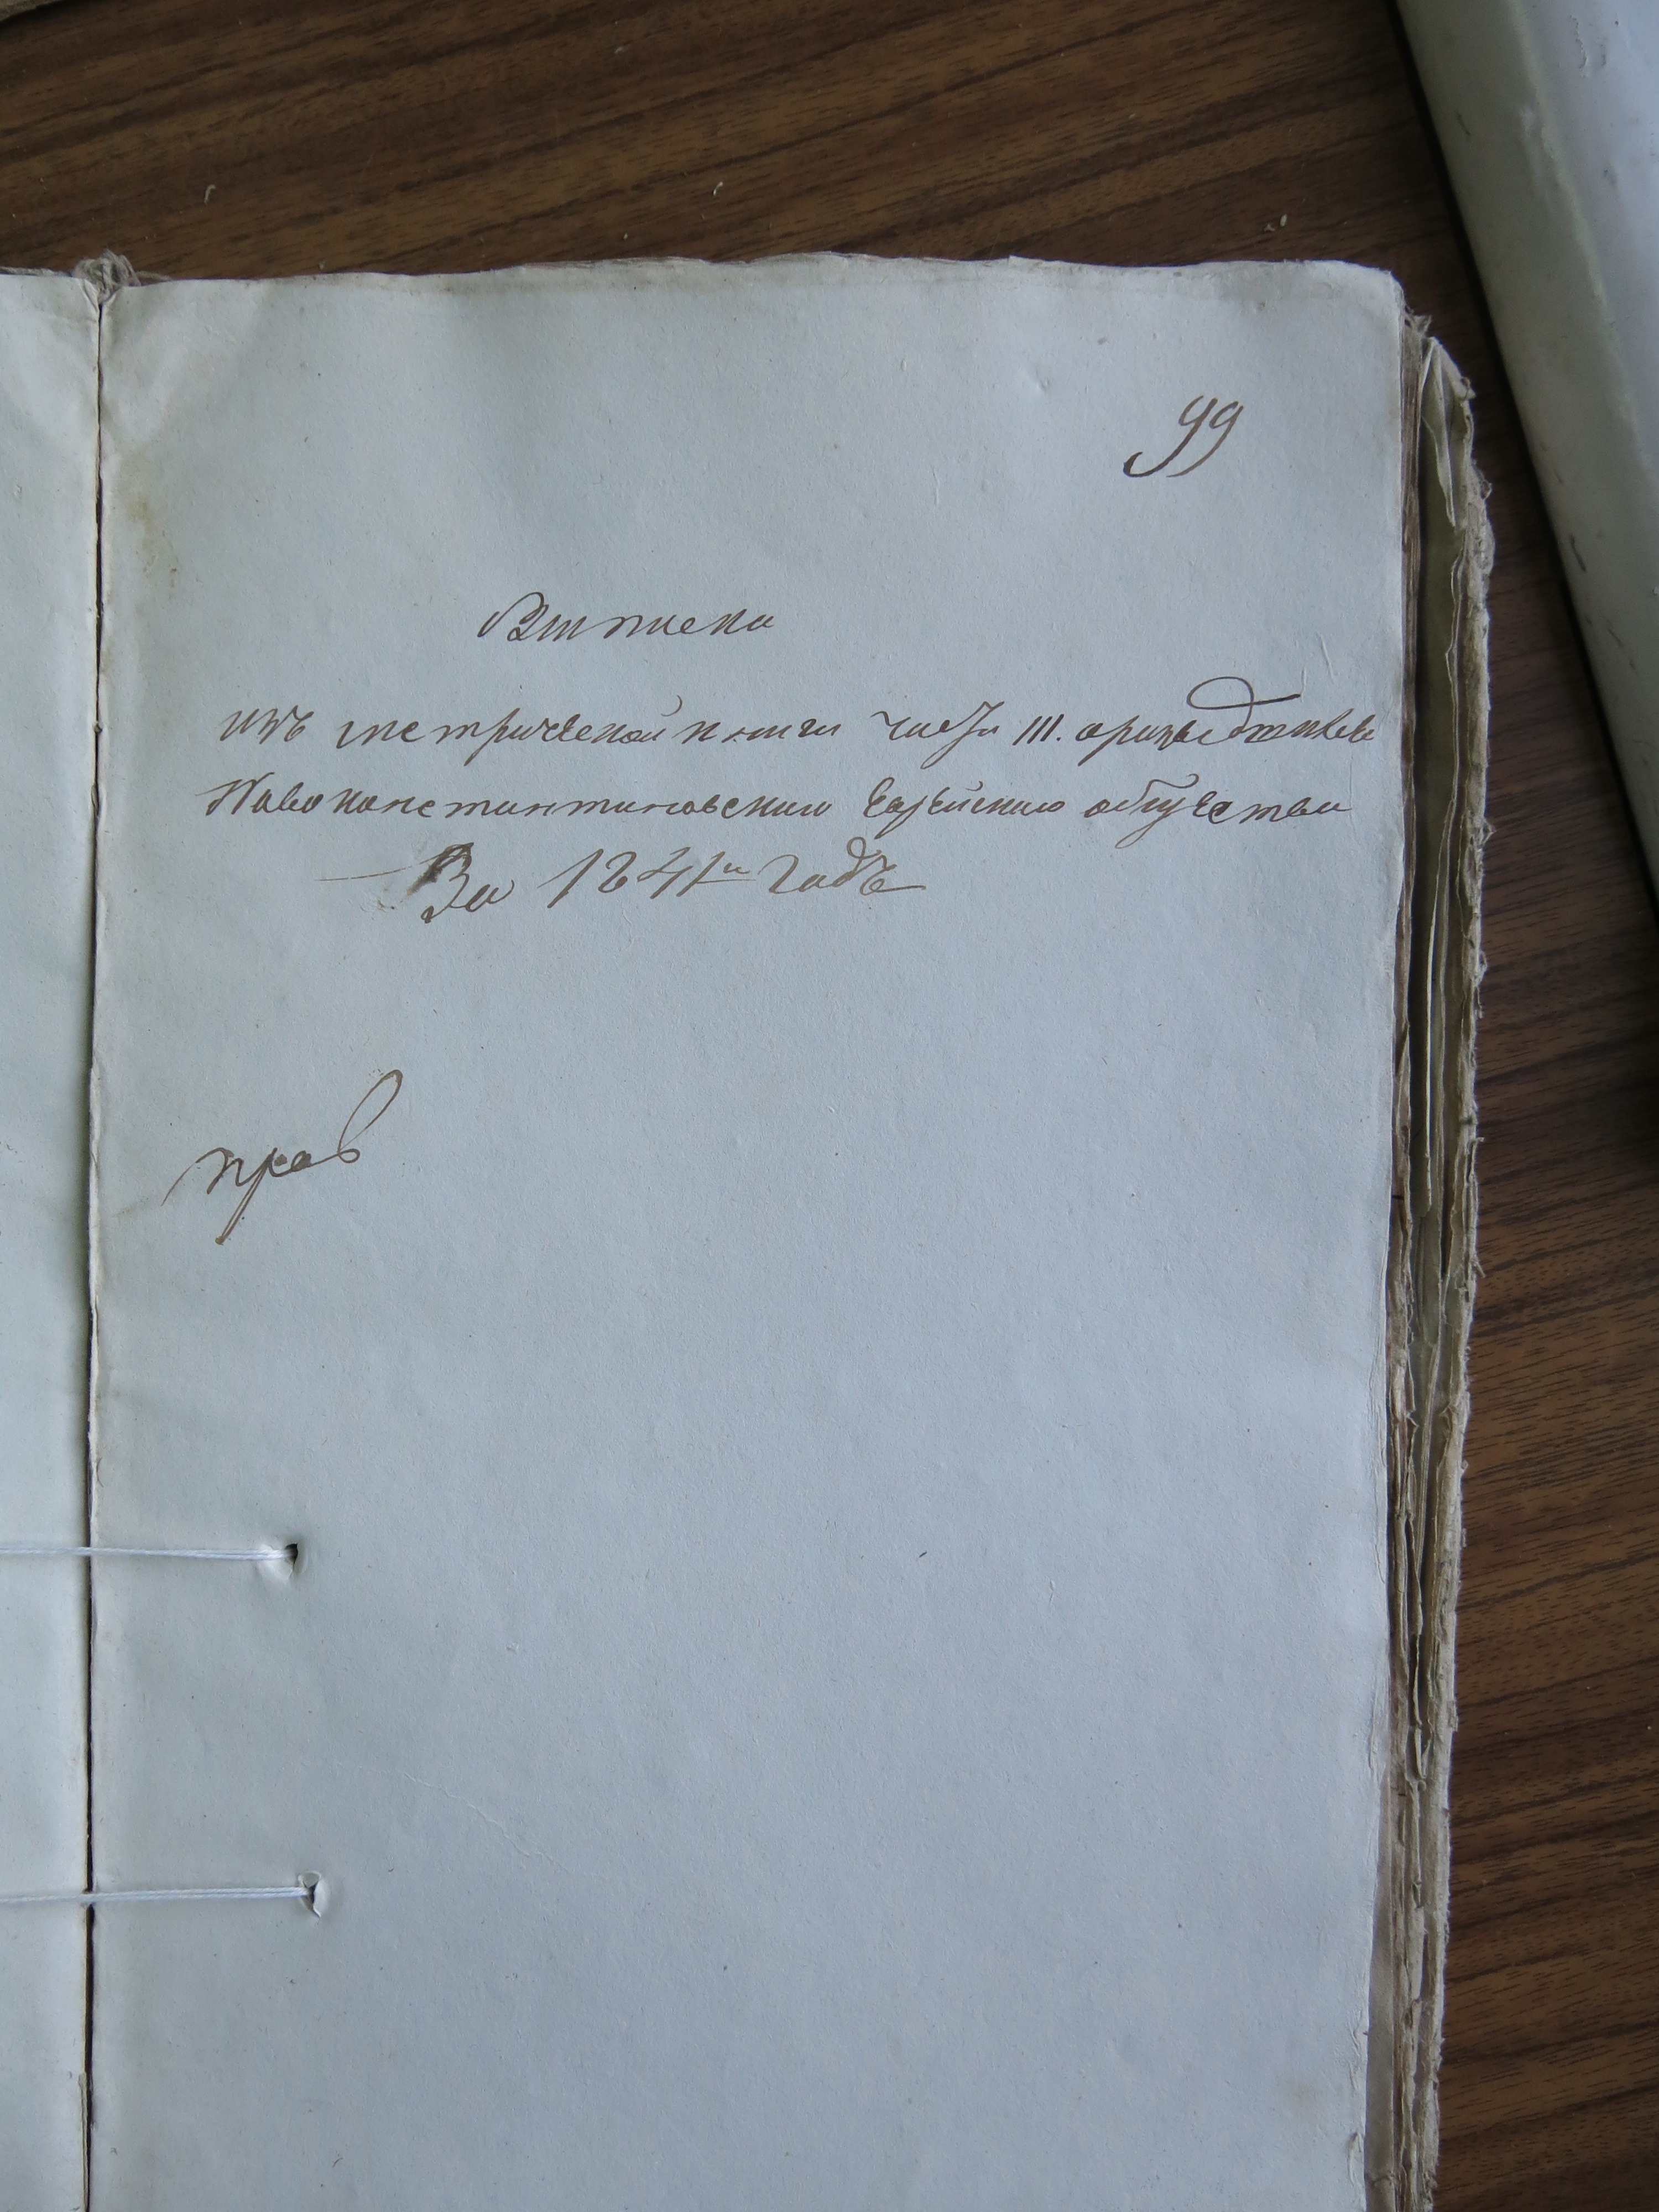 99
Выписка
изъ метрической книги части III. о разводившихся
Новоконстантиновскаго Еврейскаго общества
За 1841й годъ
прав